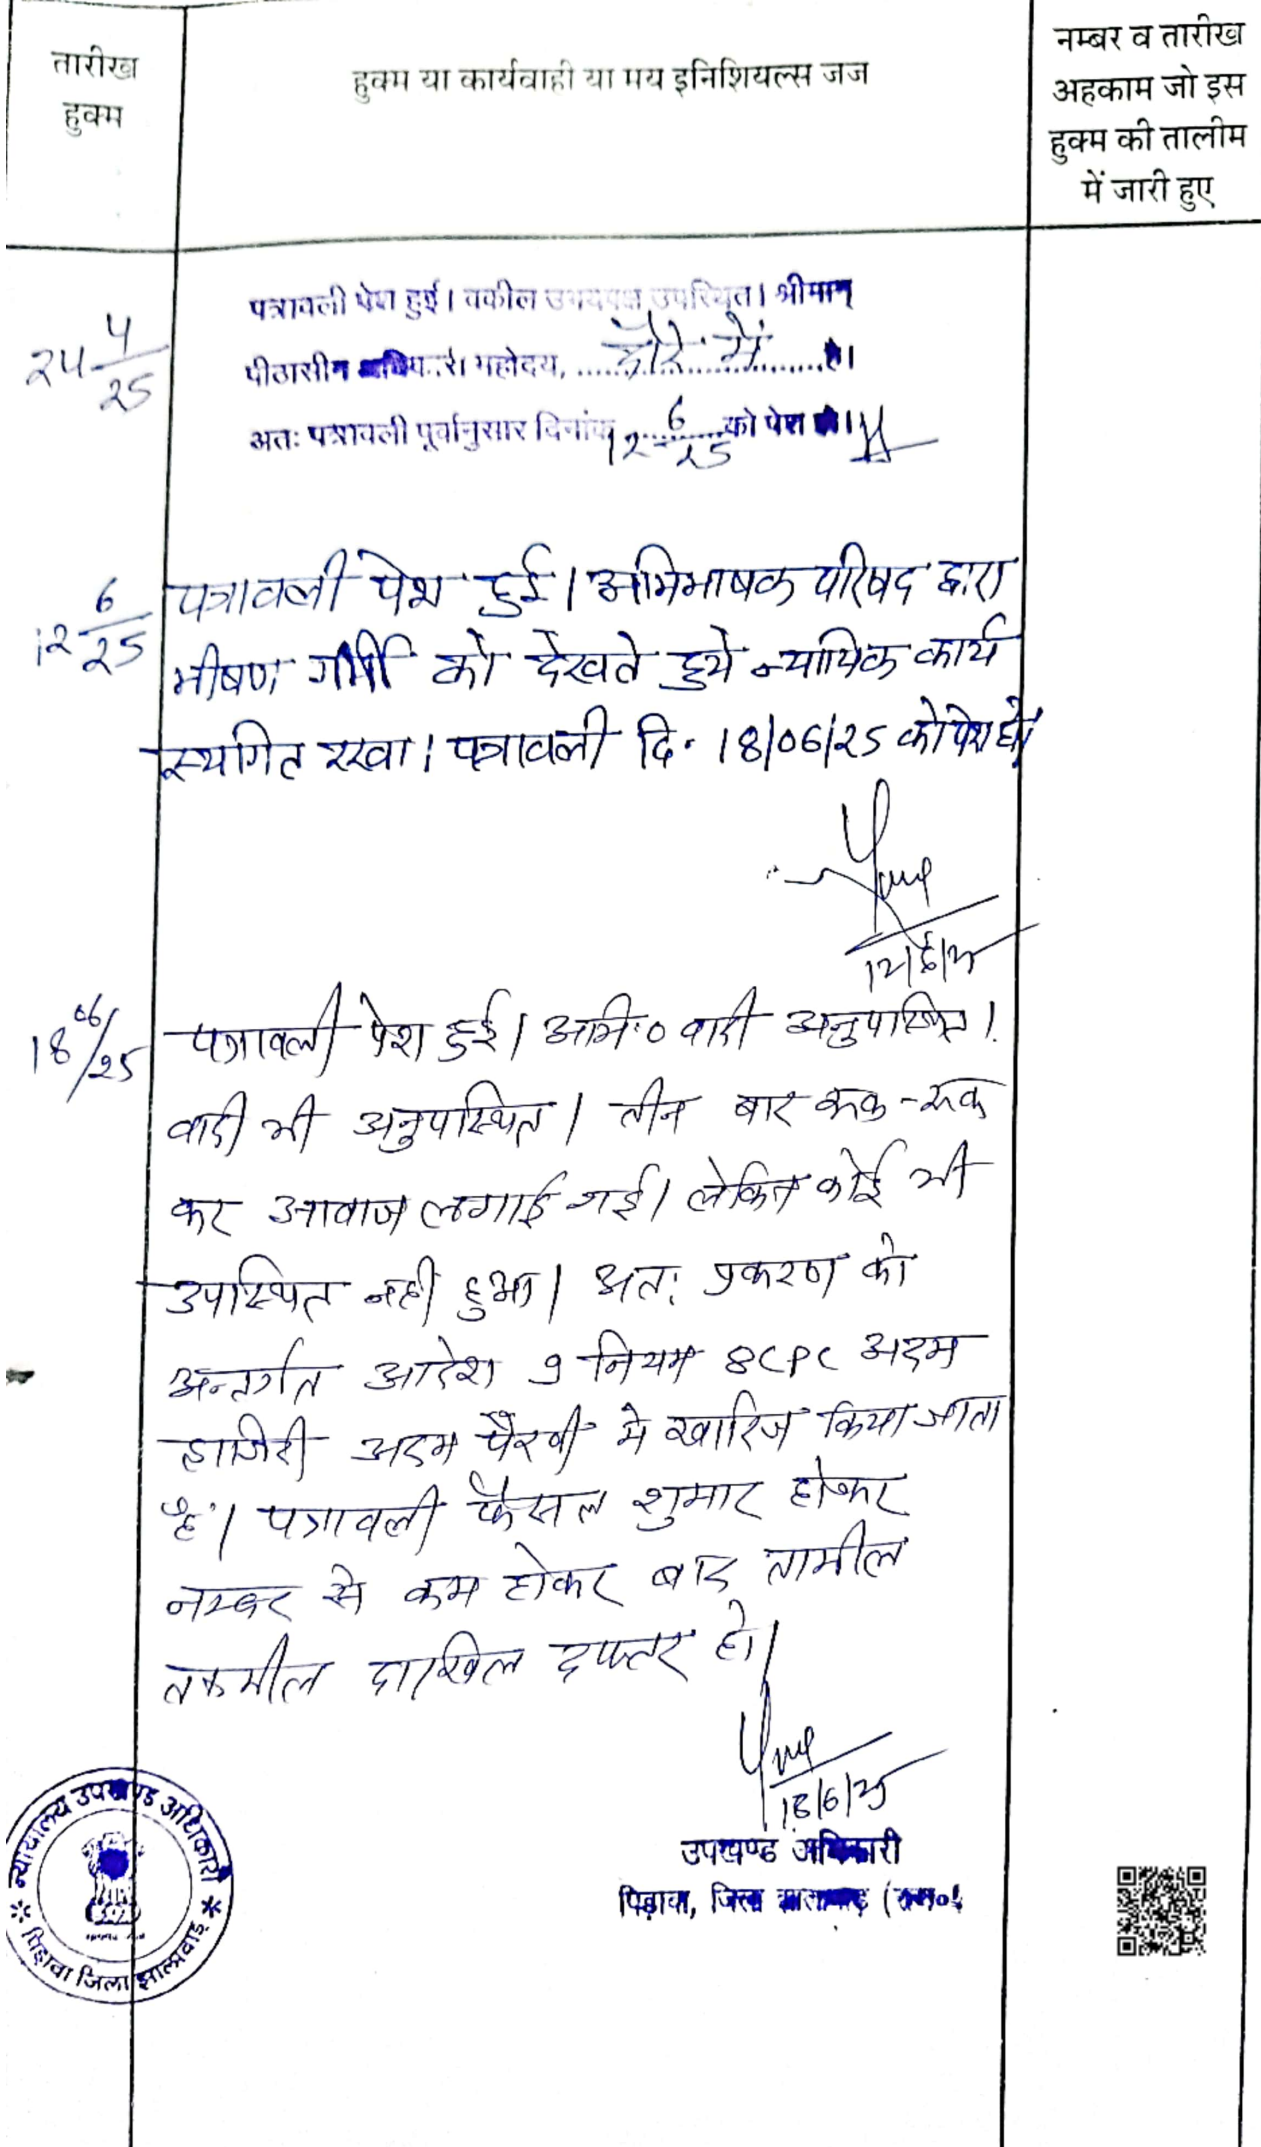 तारीख
हुक्म
हुक्म या कार्यवाही या मय इनिशियल्स जज
नम्बर व तारीख
अहकाम जो इस
हुक्म की तालीम
में जारी हुए
24 4/25
पत्रावली पेश हुई। वकील उभयपक्ष उपस्थित। श्रीमान्
पीठासीन महोदय, दौरे में है।
अतः पत्रावली पूर्वानुसार दिनांक 12 6/25 को पेश हो।
12 6/25
पत्रावली पेश हुई। अभिभाषक परिषद द्वारा
भीषण गर्मी को देखते हुये न्यायिक कार्य
स्थगित रखा। पत्रावली दि. 18/06/25 को पेश हो।
12/6/25
18 06/25
पत्रावली पेश हुई। अभि० वादी अनुपस्थित।
वादी भी अनुपस्थित। तीन बार रूक-रूक
कर आवाज लगाई गई। लेकिन कोई भी
उपस्थित नही हुआ। अतः प्रकरण को
अन्तर्गत आदेश 9 नियम 8 CPC अदम
हाजिरी अदम पैरवी मे खारिज किया जाता
है। पत्रावली फैसल शुमार होकर
नम्बर से कम होकर बाद तामील
तकमील दाखिल दफ्तर हो।
18/6/25
उपखण्ड अधिकारी
पिड़ावा, जिला
न्यायालय उपखण्ड अधिकारी
पिड़ावा जिला झालावाड़